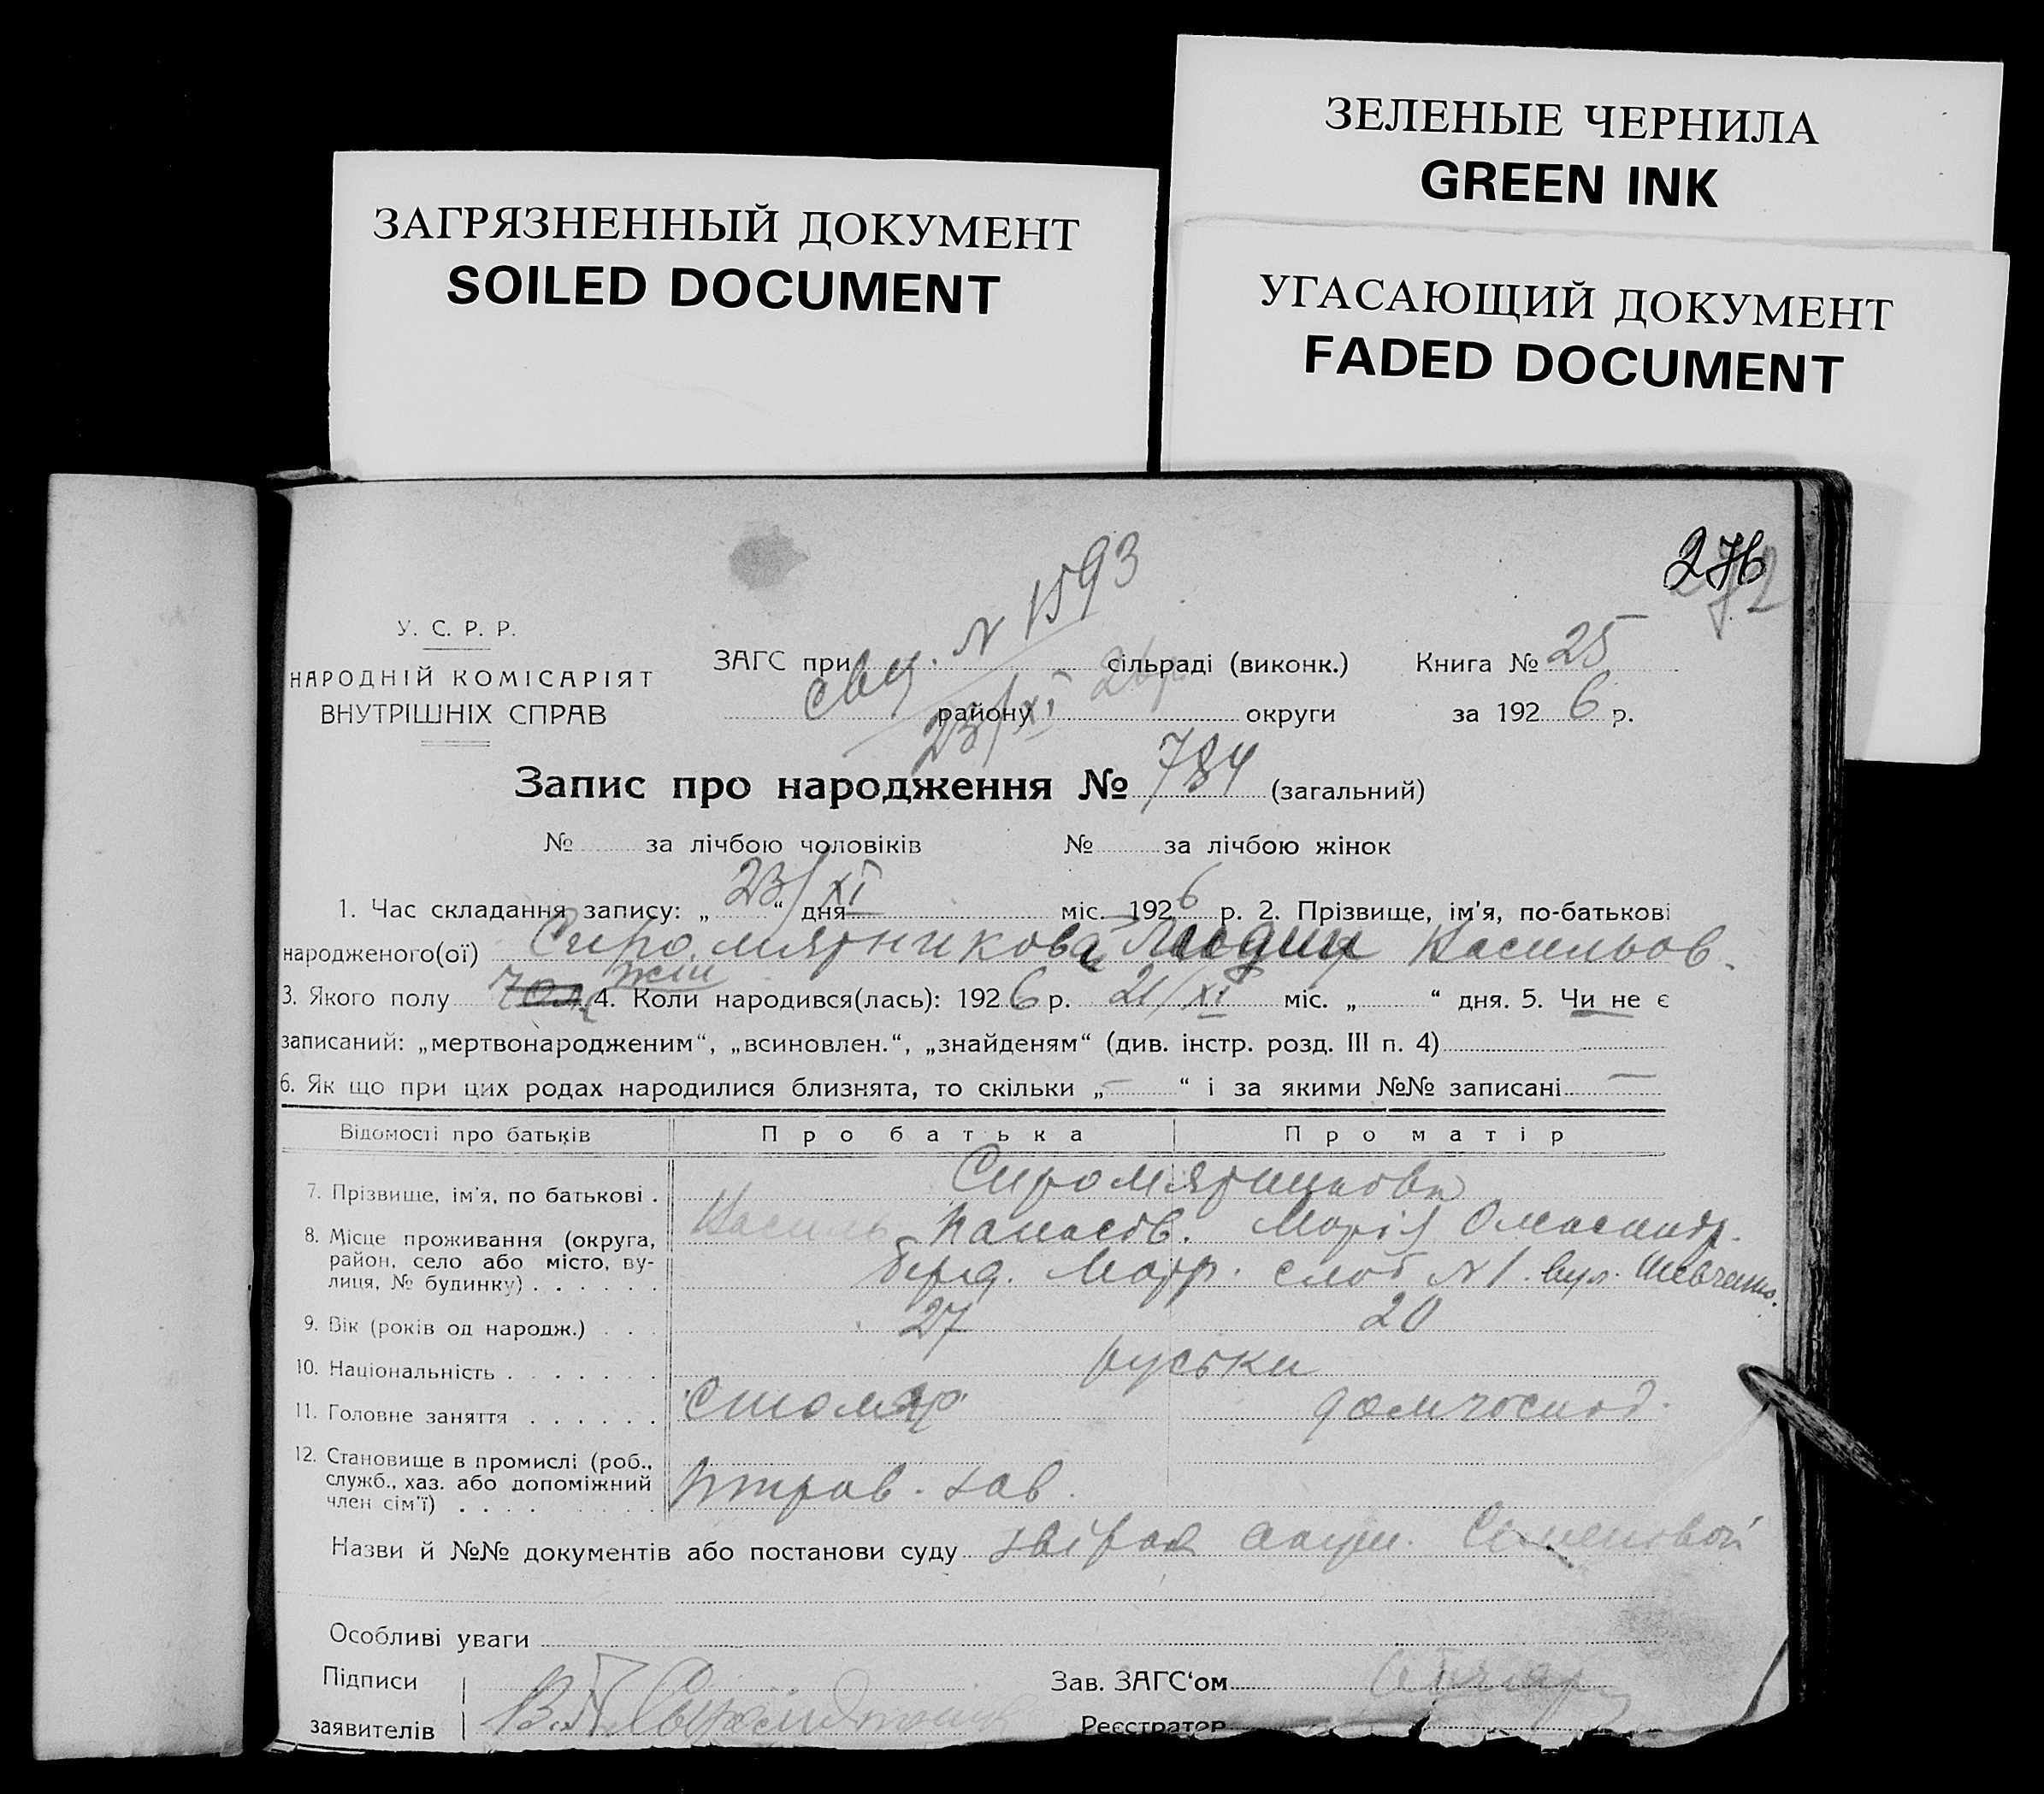 ЗЕЛЕНЫЕ ЧЕРНИЛА
GREEN INK
ЗАГРЯЗНЕННЫЙ ДОКУМЕНТ
SOILED DOCUMENT
УГАСАЮЩИЙ ДОКУМЕНТ
FADED DOCUMENT
276
272
У. С. Р. Р.
НАРОДНІЙ КОМІСАРІЯТ
ВНУТРІШНІХ СПРАВ
свід. N 1593
23/XI 26 р
ЗАГС при сільраді (виконк.) Книга № 25
району округи за 1926 р.
Запис про народження № 784 (загальний)
№ за лічбою чоловіків № за лічбою жінок
1. Час складання запису: „23/XI“ дня міс. 1926 р. 2. Прізвище, ім'я, по-батькові
народженого(ої) Сиромятникова Лидия Васильов.
3. Якого полу жін 4. Коли народився(лась): 1926 р. 21/XI міс. „ “ дня. 5. Чи не є
записаний: „мертвонародженим“, „всиновлен.“, „знайденям“ (див. інстр. розд. III п. 4)
6. Як що при цих родах народилися близнята, то скільки „–“ і за якими №№ записані –
Відомості про батьків Про батька Про матір
7. Прізвище, ім'я, по батькові . Сиромятникови
Василь Панасов. Марія Олександр.
8. Місце проживання (округа, район, село або місто, вулиця, № будинку) . . . . . . Берд. Матр. слоб N 1. вул. Шевченко.
9. Вік (років од народж.) . . . 27 20
10. Національність . . . . . . . руськи
11. Головне заняття . . . . . . Столяр домгоспод.
12. Становище в промислі (роб., служб., хаз. або допоміжний член сім'ї) . . . . зав.
Назви й №№ документів або постанови суду Семеновой
Особливі уваги
Підписи Зав. ЗАГС'ом
заявителів Реєстратор